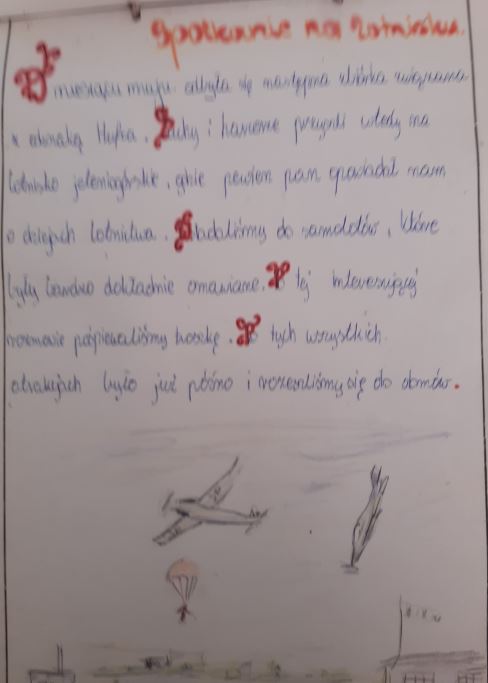 Spotkanie na lotnisku.
W miesiącu maju odbyła się następna zbiórka związana
z odznaką Hufca. Zuchy i harcerze przyszli wtedy na
lotnisko jeleniogórskie, gdzie pewien pan opowiadał nam
o dziejach lotnictwa. Siadaliśmy do samolotów, które
były bardzo dokładnie omawiane. Po tej interesującej
rozmowie pośpiewaliśmy troszkę. Po tych wszystkich
atrakcjach było już późno i rozeszliśmy się do domów.